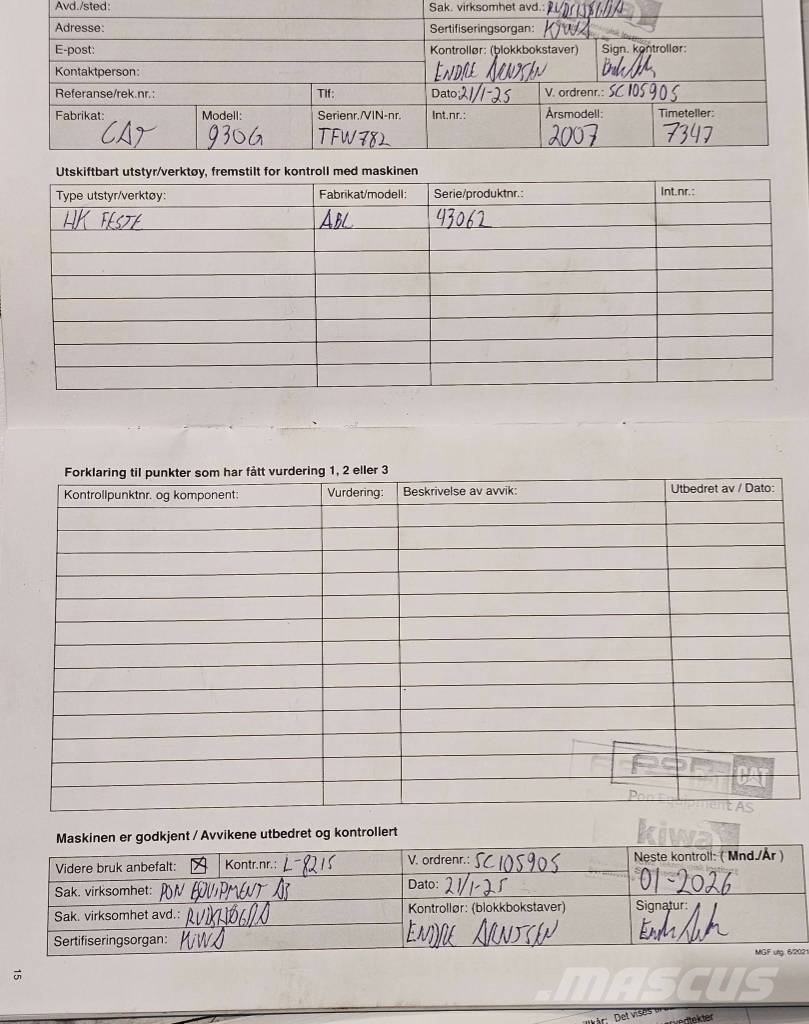 Avd./sted: Sak. virksomhet avd.:
Adresse: Sertifiseringsorgan: KIWA
E-post: Kontrollør: (blokkbokstaver) Sign. kontrollør:
Kontaktperson: ENDRE ARNTSEN
Referanse/rek.nr.: Tlf: Dato: 21/1-25 V. ordrenr.: SC105905
Fabrikat: Modell: Serienr./VIN-nr. Int.nr.: Årsmodell: Timeteller:
CAT 930G TFW782 2007 7347
Utskiftbart utstyr/verktøy, fremstilt for kontroll med maskinen
Type utstyr/verktøy: Fabrikat/modell: Serie/produktnr.: Int.nr.:
HK FESTE ABL 43062
Forklaring til punkter som har fått vurdering 1, 2 eller 3
Kontrollpunktnr. og komponent: Vurdering: Beskrivelse av avvik: Utbedret av / Dato:
CAT
Pon Equipment AS
kiwa
Maskinen er godkjent / Avvikene utbedret og kontrollert
Videre bruk anbefalt: Kontr.nr.: L-8215 V. ordrenr.: SC105905 Neste kontroll: ( Mnd./År )
Sak. virksomhet: PON EQUIPMENT AS Dato: 21/1-25 01-2026
Sak. virksomhet avd.: Kontrollør: (blokkbokstaver) Signatur:
Sertifiseringsorgan: KIWA ENDRE ARNTSEN
MGF utg. 6/2021
15
mascus
Det vises